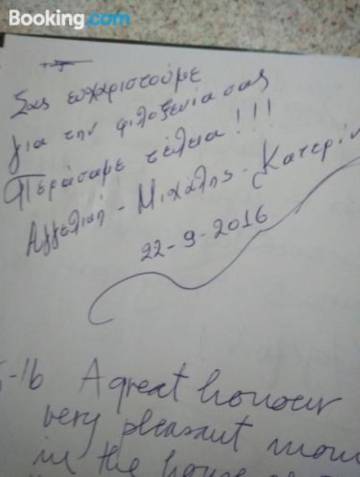 Booking.com
Σας ευχαριστούμε
για την φιλοξενία σας
Περάσαμε τέλεια!!!
Αγγελική - Μιχάλης - Κατερίν
22-9-2016
-16 A great honour
very pleasant mom
in the house